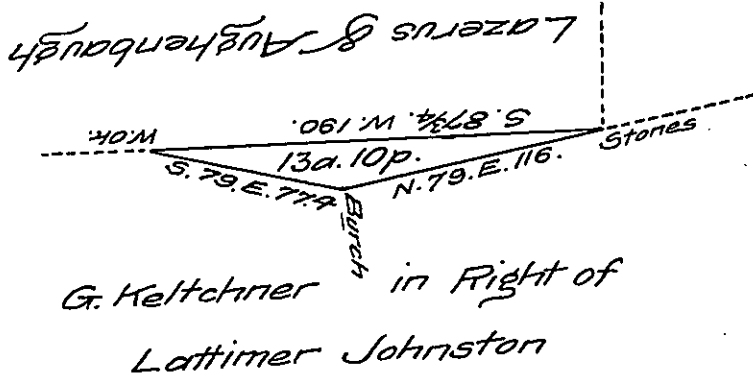 Lazerus & Aughenbaugh
S. 87¾. W. 190.
W.OK.
13a. 10p.
Stones
S. 79. E. 77.4
N. 79. E. 116.
Burch
G. Keltchner in Right of
Lattimer Johnston